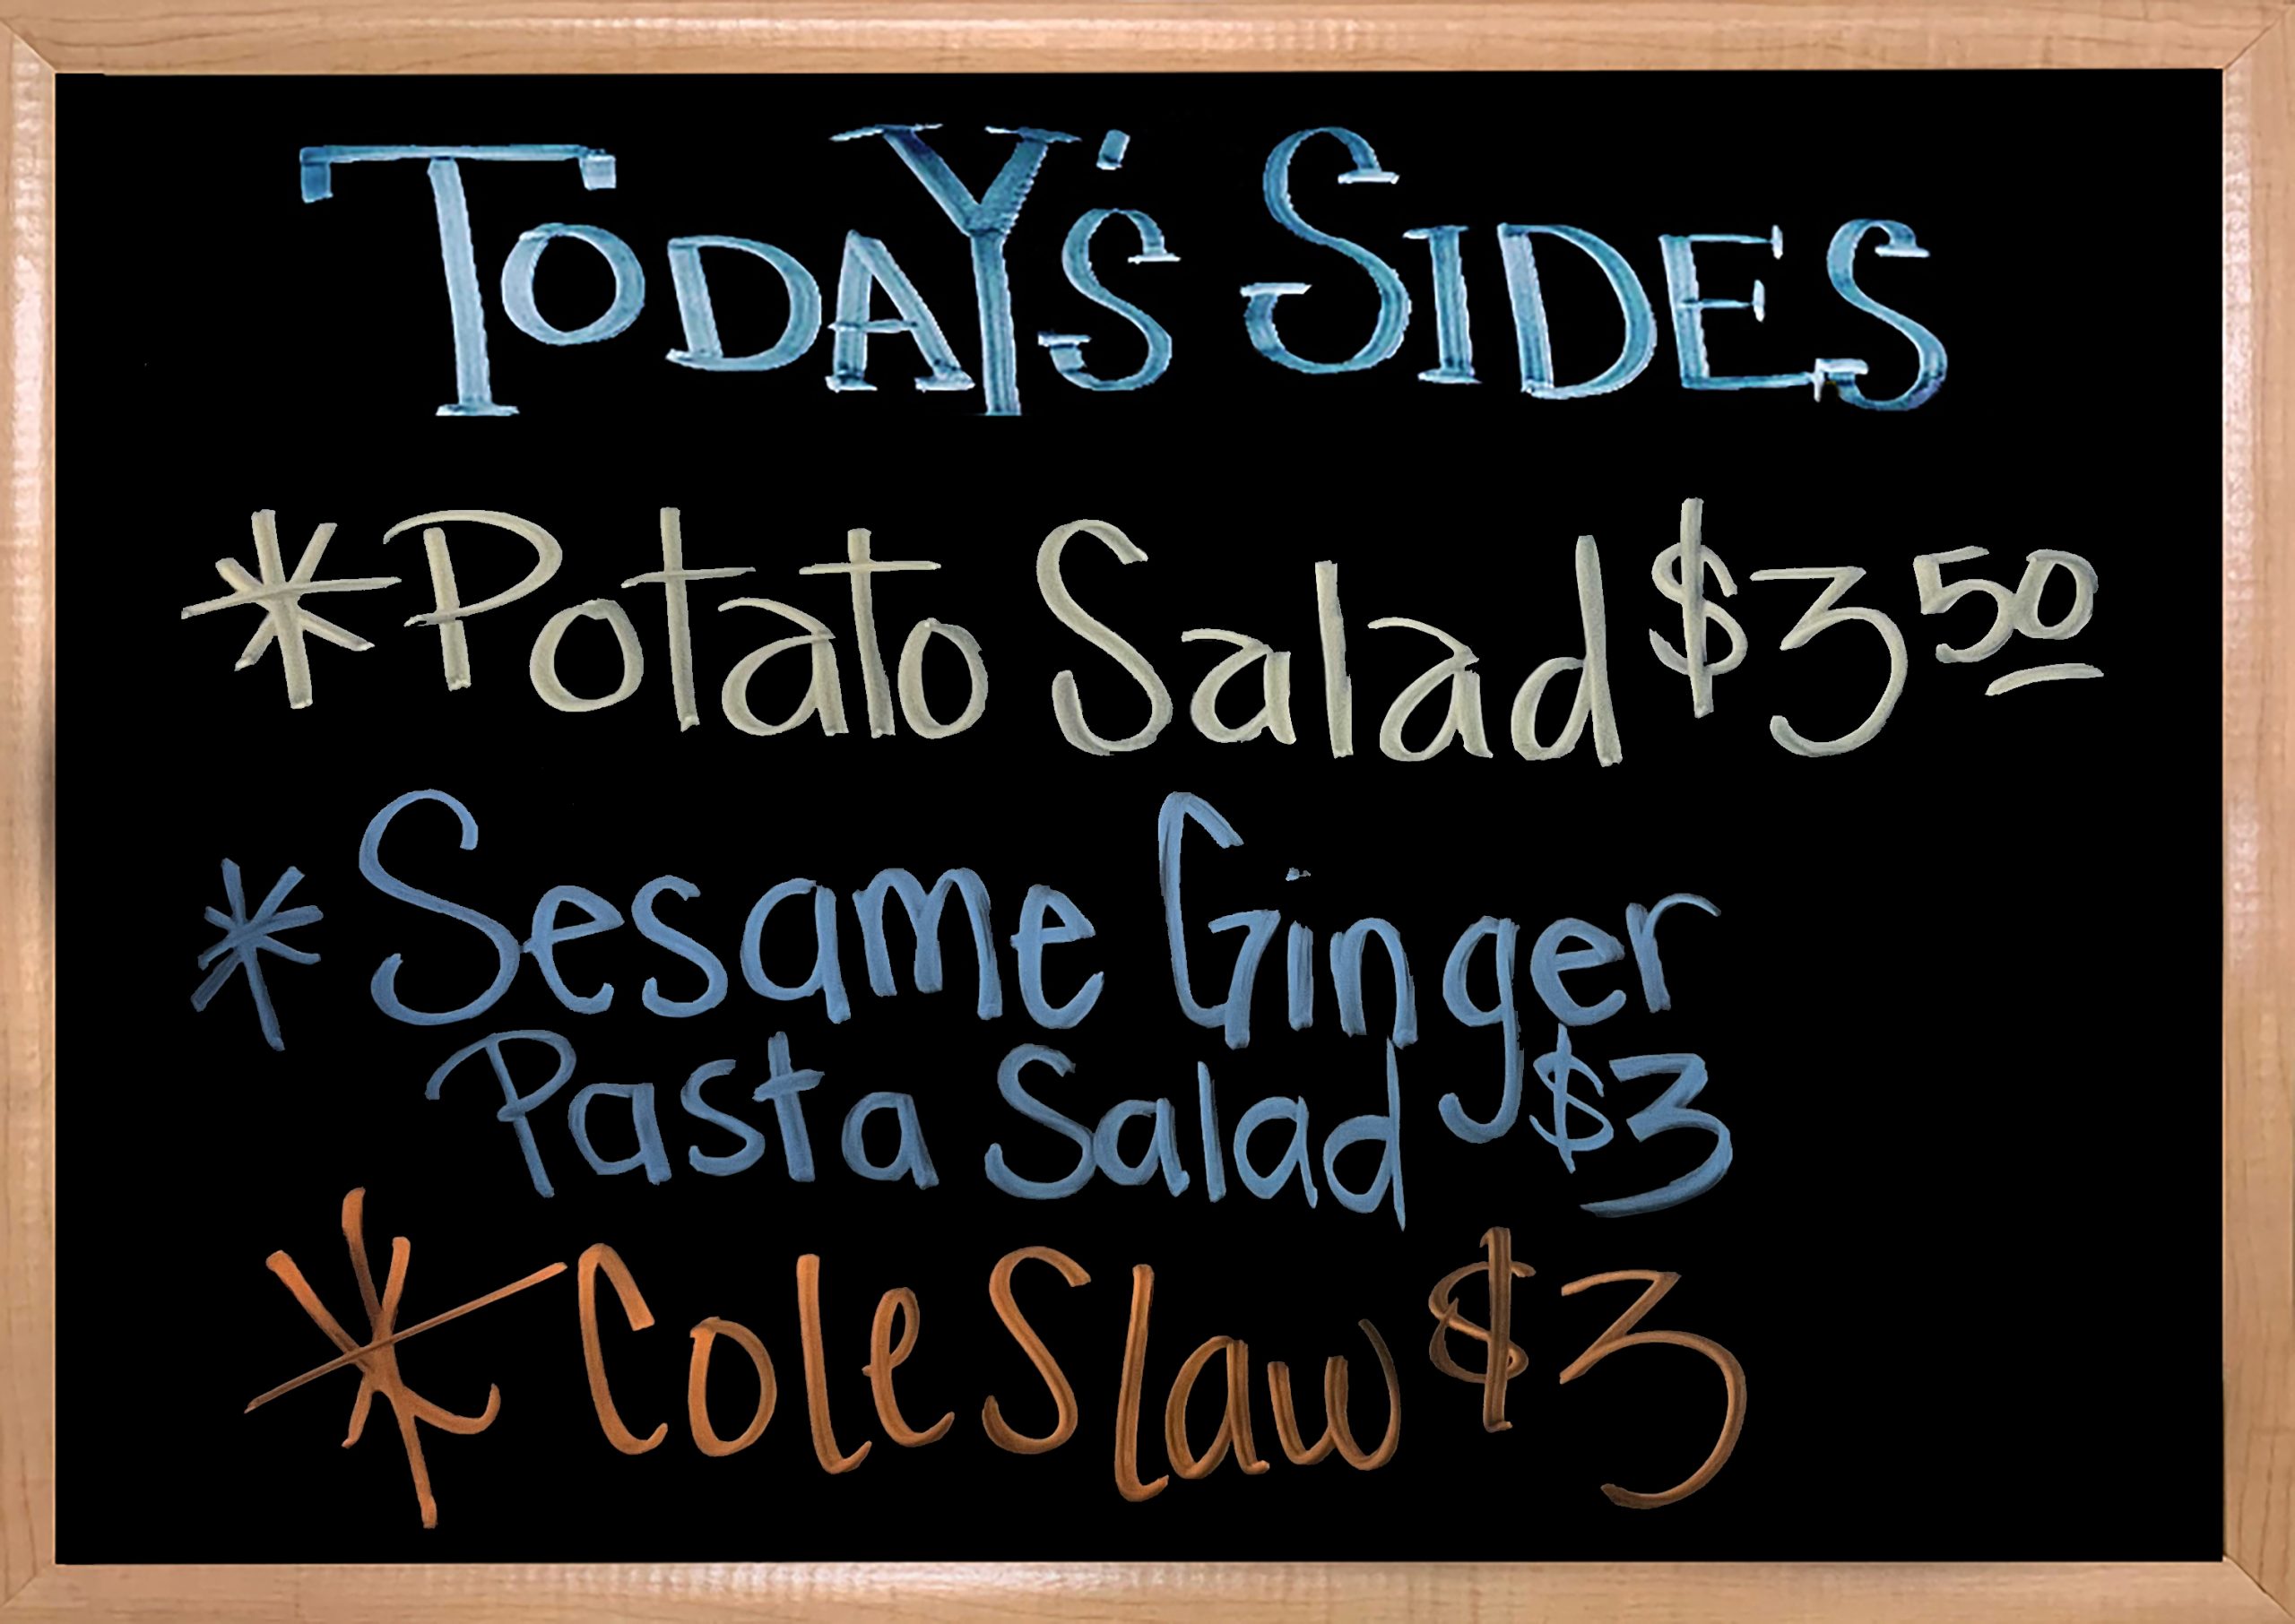 TODAY'S SIDES
*Potato Salad $3 50
* Sesame Ginger
Pasta Salad $3
* Cole Slaw $3